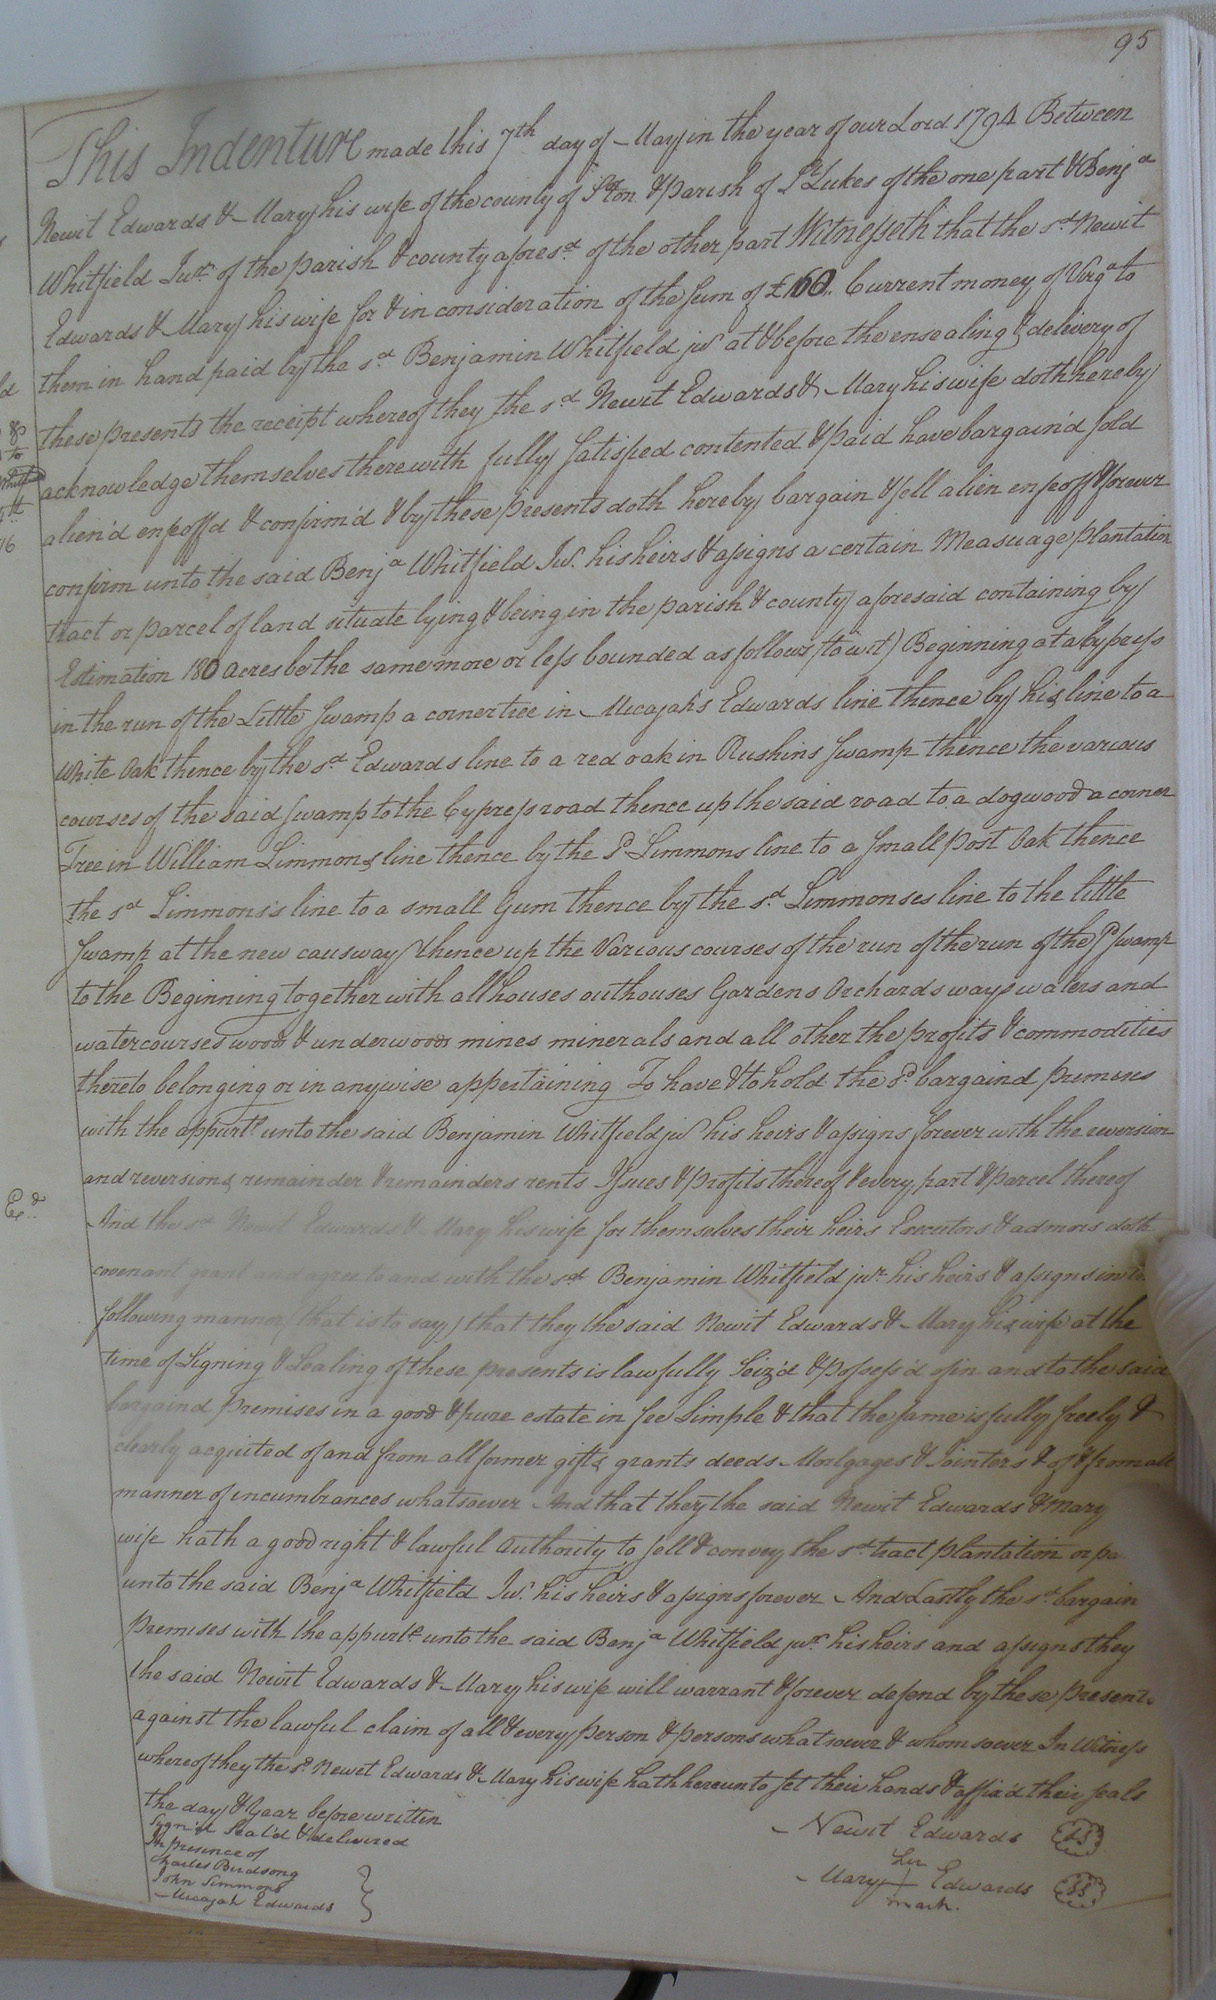 95
This Indenture made this 7th day of May in the year of our Lord 1794 Between
Newit Edwards & Mary his wife of the county of S°ton & Parish of St Lukes of the one part & Benja
Whitfield Junr of the parish & county aforesd of the other part Witnesseth that the sd Newit
Edwards & Mary his wife for & in consideration of the sum of £160. Current money of Virga to
them in hand paid by the sd Benjamin Whitfield jur at & before the ensealing & delivery of
these presents the receipt whereof they the sd Newit Edwards & Mary his wife doth hereby
acknowledge themselves therewith fully satisfied contented & paid have bargain'd sold
alien'd enfeoff'd & confirm'd & by these presents doth hereby bargain & sell alien enfeoff & forever
confirm unto the said Benja Whitfield Jur his heirs & assigns a certain Measuage plantation
tract or parcel of land situate lying & being in the parish & county aforesaid containing by
Estimation 180 acres be the same more or less bounded as follows (to wit) Beginning at a Cypress
in the run of the Little Swamp a corner tree in Micajah's Edwards line thence by his line to a
White Oak thence by the sd Edwards line to a red oak in Rushins Swamp thence the various
courses of the said Swamp to the Cypress road thence up the said road to a dogwood a corner
Tree in William Simmons line thence by the sd Simmons line to a small Post Oak thence
the sd Simmons's line to a small Gum thence by the sd Simmonses line to the little
Swamp at the new causway thence up the Various courses of the run of the run of the sd Swamp
to the Beginning together with all houses outhouses Gardens Orchards ways waters and
watercourses woods & underwoods mines minerals and all other the profits & commodities
thereto belonging or in anywise appertaining To have & to hold the sd bargaind premises
with the appurts unto the said Benjamin Whitfield jur his heirs & assigns forever with the reversion
and reversions remainder & remainders rents Issues & Profits thereof & every part & parcel thereof
Exd
And the sd Newit Edwards & Mary his wife for themselves their heirs Executors & admors doth
covenant grant and agree to and with the sd Benjamin Whitfield jur his heirs & assigns in
following manner (that is to say) that they the said Newit Edwards & Mary his wife at the
time of Signing & Sealing of these presents is lawfully Seiz'd & possess'd of in and to the said
bargaind premises in a good & pure estate in fee Simple & that the same is fully freely &
clearly acquited of and from all former gifts grants deeds Mortgages & Jointers & of & from all
manner of incumbrances whatsoever And that they the said Newit Edwards & Mary
wife hath a good right & lawful Authority to sell & convey the sd tract plantation or pa
unto the said Benja Whitfield Jur his heirs & assigns forever And Lastly the sd bargain
Premises with the appurts unto the said Benja Whitfield jur his heirs and assigns they
the said Newit Edwards & Mary his wife will warrant & forever defend by these presents
against the lawful claim of all & every person & persons whatsoever & whomsoever In Witness
whereof they the sd Newet Edwards & Mary his wife hath hereunto set their hands & affix'd their seals
the day & Year before written
Sign'd Seal'd & delivered
In presence of
Charles Birdsong
John Simmons
Micajah Edwards
Newit Edwards LS
her
Mary + Edwards LS
mark.